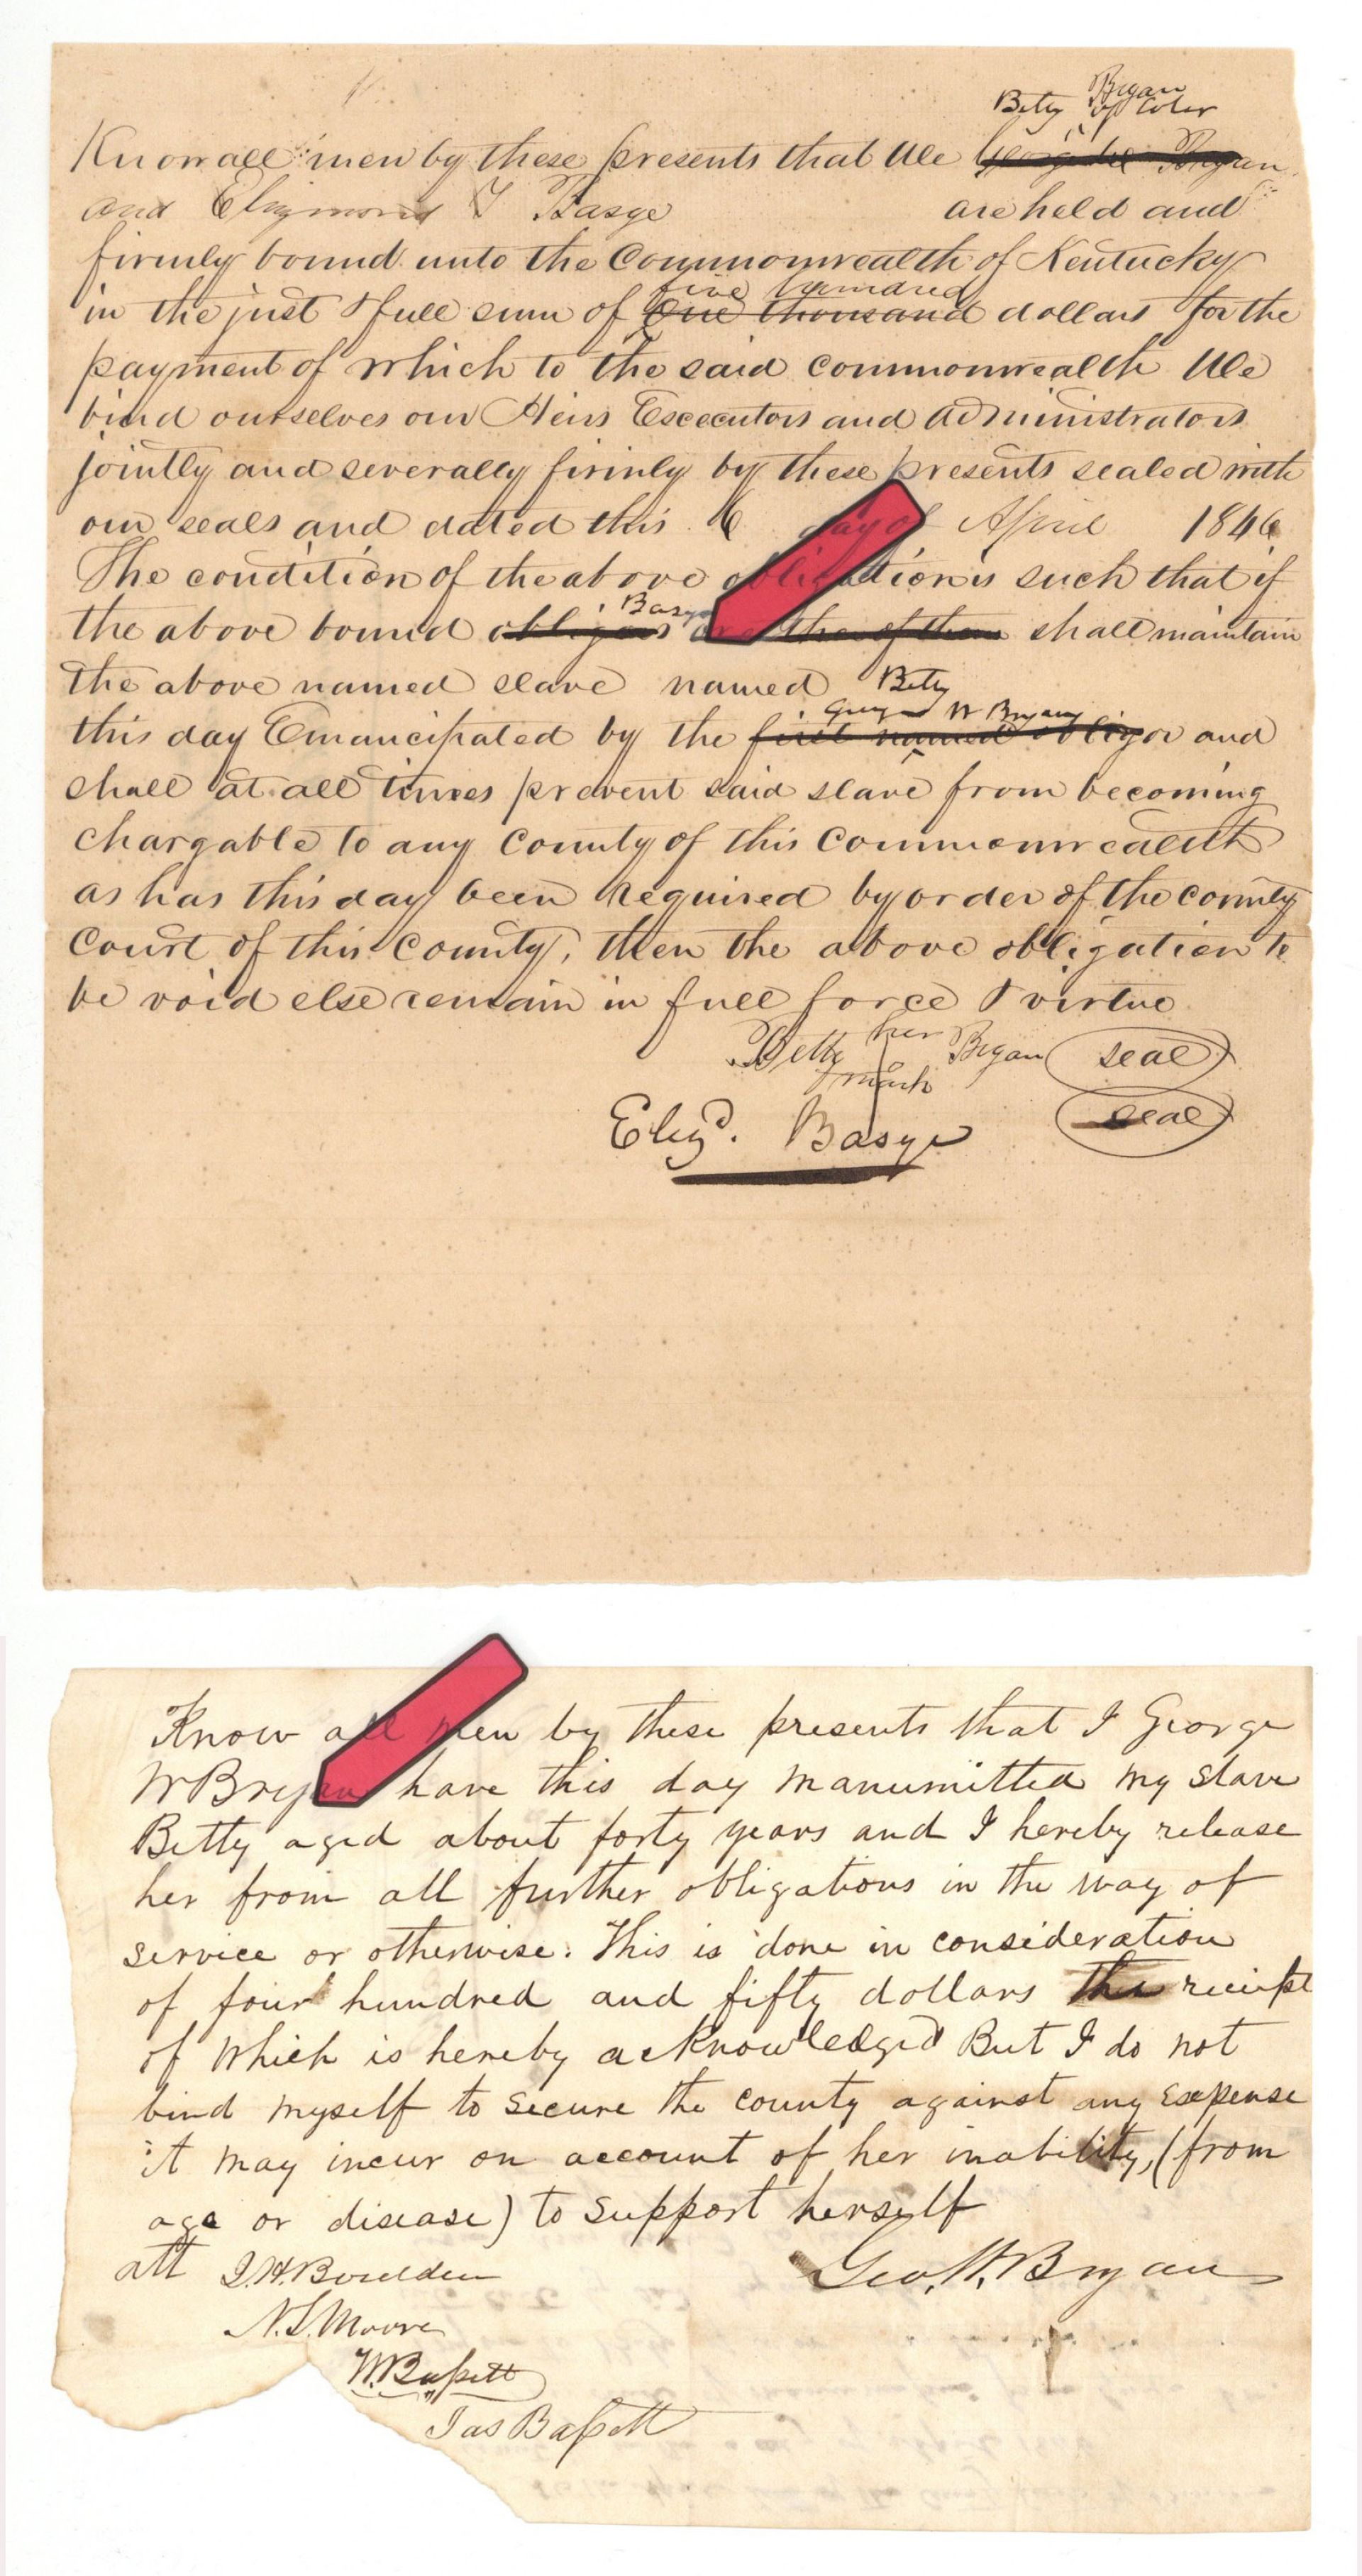 Bryan
Bety of Coler
Know all men by these presents that We George W Bryan
and Eligmond T Basye are held and
firmly bound unto the Commonwealth of Kentucky
five hundred
in the just & full sum of One thousand dollars for the
payment of which to the said commonwealth We
bind ourselves our Heirs Excecutors and administrators
jointly and severally firmly by these presents sealed with
our seals and dated this 6 day of April 1846
The condition of the above obligation is such that if
Basye
the above bound obligors or either of them shall maintain
the above named slave named Bety
George W Bryan
this day Emancipated by the first named obligor and
shall at all times prevent said slave from becoming
chargable to any County of this Commonwealth
as has this day been required by order of the county
Court of this County, then the above obligation to
be void else remain in full force & virtue
Betty her Bryan seal
mark
Eligd. Basye seal
Know all men by these presents that I George
W Bryan have this day manumitted my slave
Betty aged about forty years and I hereby release
her from all further obligations in the way of
service or otherwise. This is done in consideration
of four hundred and fifty dollars the reciept
of which is hereby acknowledged But I do not
bind myself to secure the county against any expense
it may incur on account of her inability, (from
age or disease) to support herself
att J. H. Boulden Geo. W. Bryan
N. S. Moore
W. Bassett
Jas Bassett